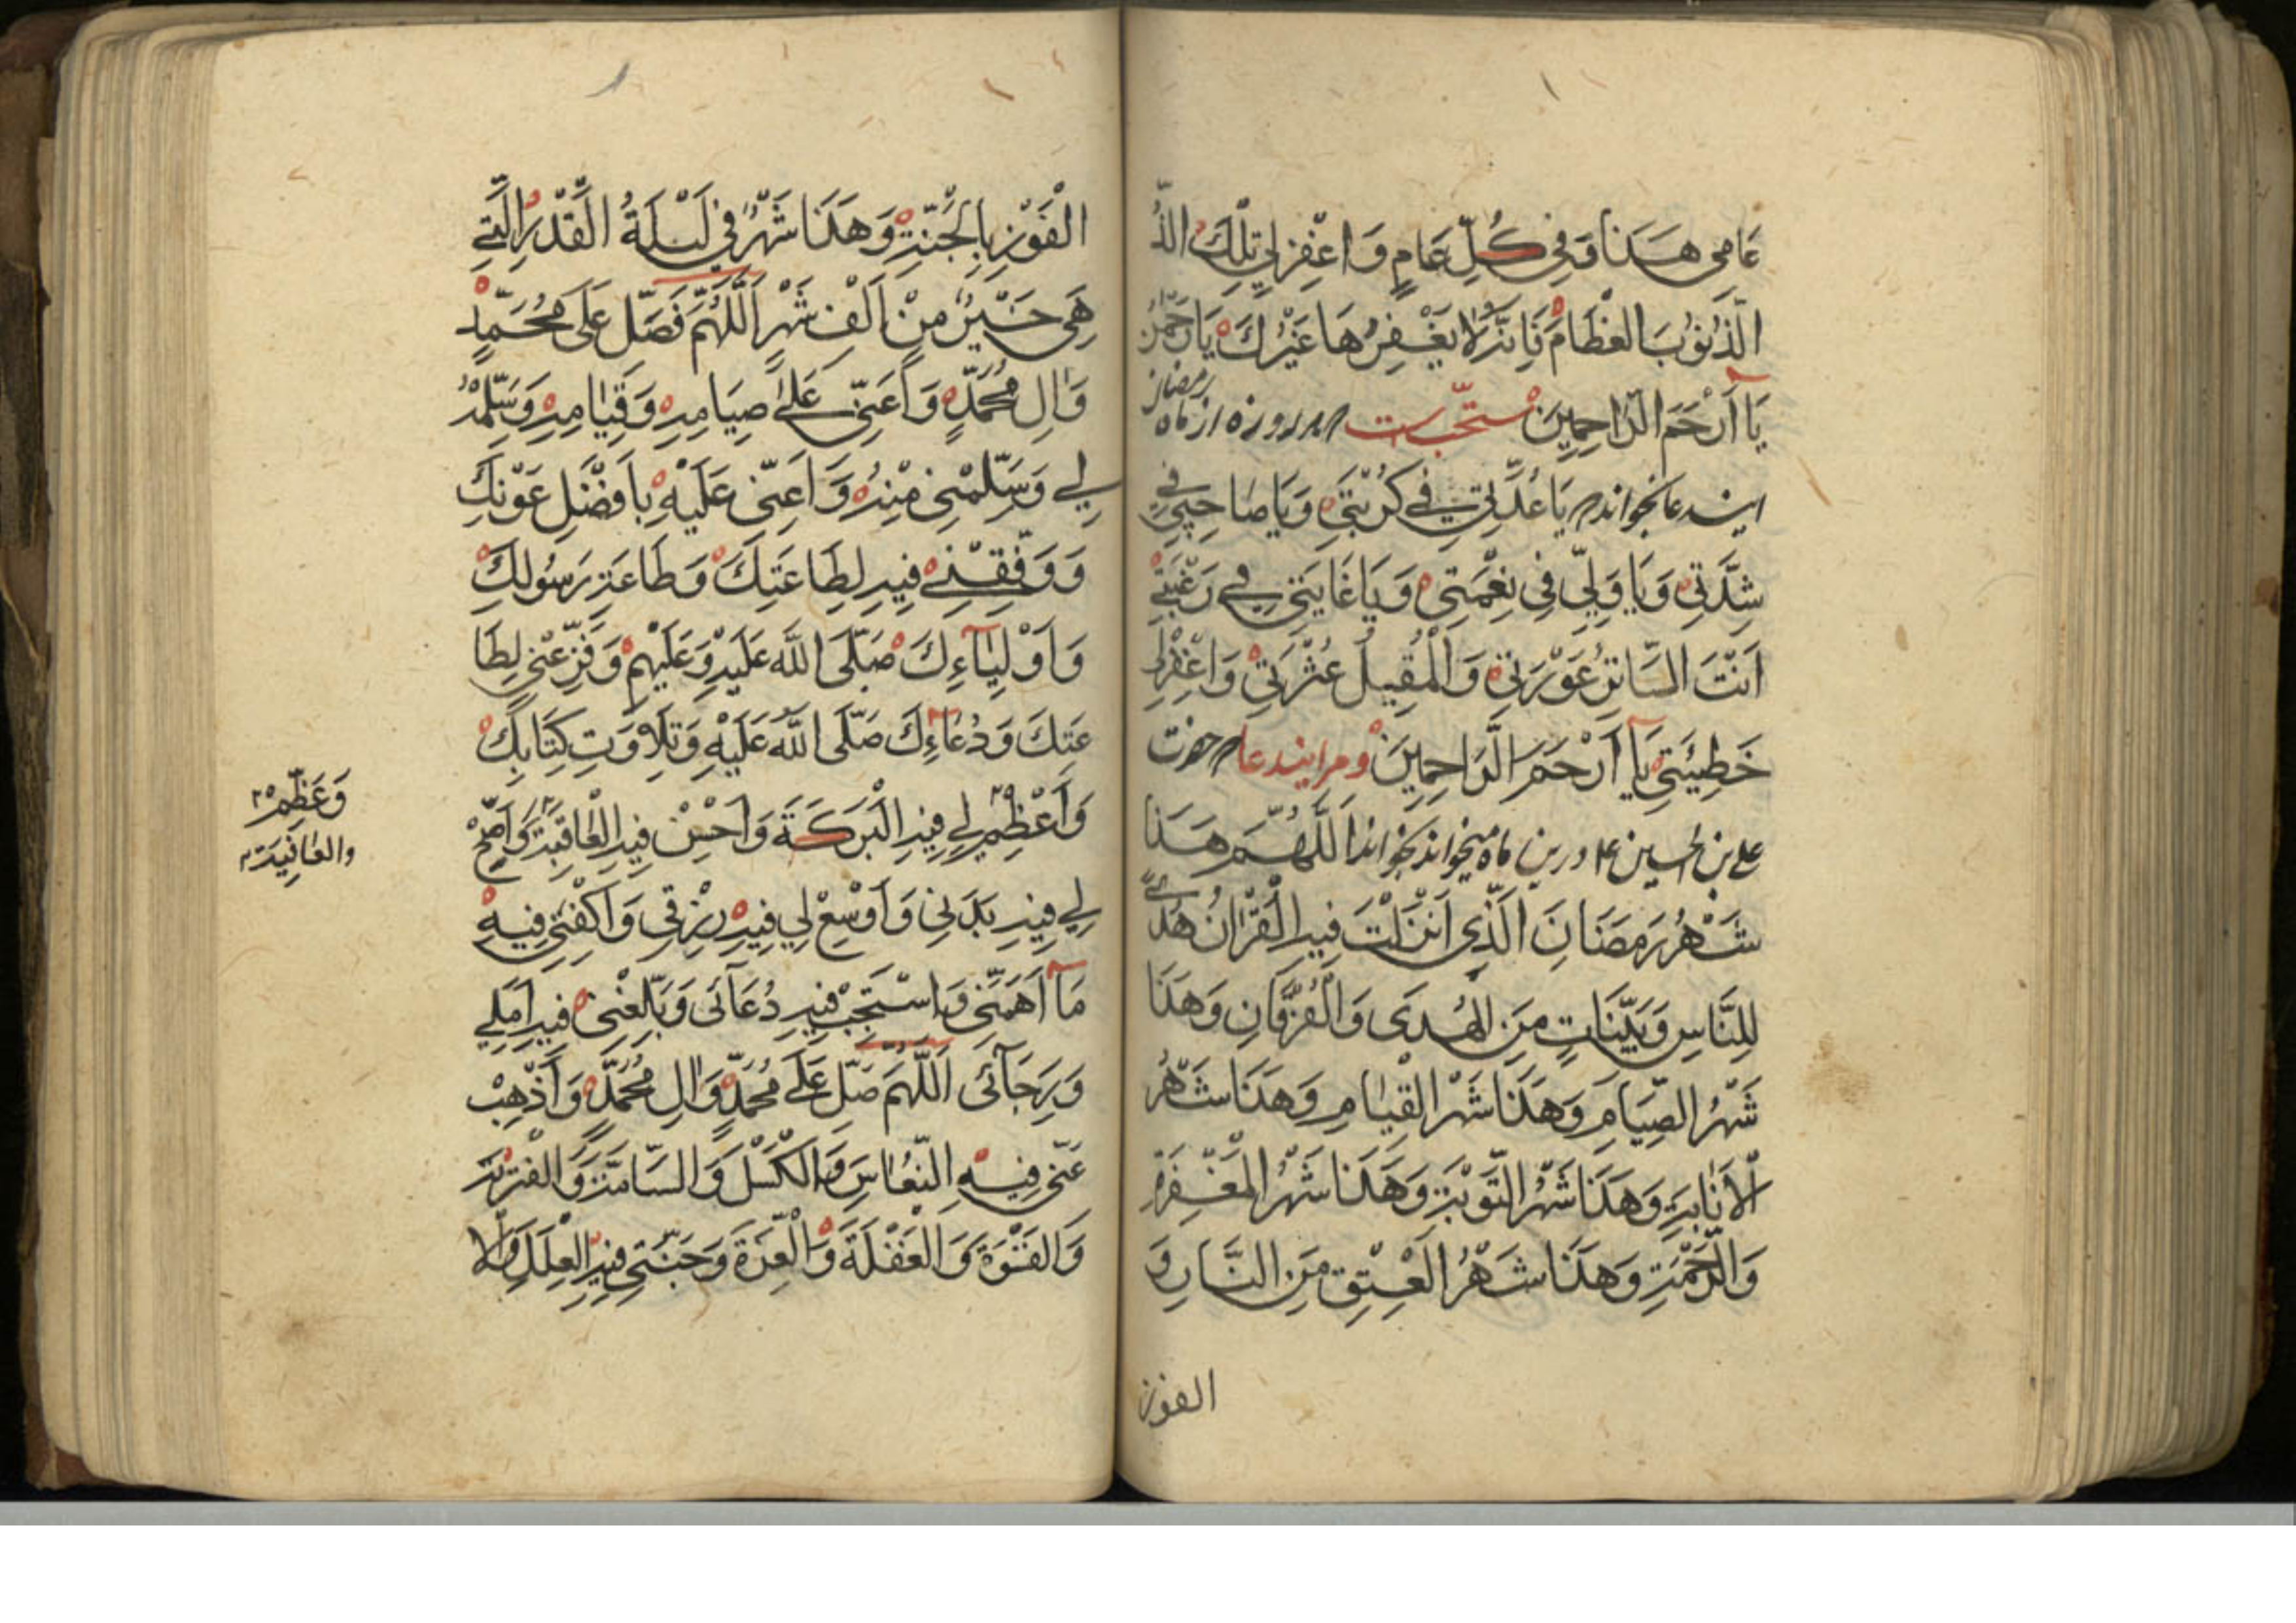 عَامِي هَذَا وَفِي كُلِّ عَامٍ وَاغْفِرْ لِي تِلْكَ الذُّ
الذُّنُوبَ الْعِظَامَ فَإِنَّهُ لَا يَغْفِرُهَا غَيْرُكَ يَا رَحْمٰنُ
يَا أَرْحَمَ الرَّاحِمِينَ مستحبّ است هر روزه از ماه رمضان
ایندعا بخواند يَا عُدَّتِي فِي كُرْبَتِي وَيَا صَاحِبِي فِي
شِدَّتِي وَيَا وَلِيِّي فِي نِعْمَتِي وَيَا غَايَتِي فِي رَغْبَتِي
أَنْتَ السَّاتِرُ عَوْرَتِي وَالْمُقِيلُ عَثْرَتِي وَاغْفِرْ لِي
خَطِيئَتِي يَا أَرْحَمَ الرَّاحِمِينَ ومر ایندعا حضرت
علی بن الحسین ع در این ماه میخواند بخواند اَللّٰهُمَّ هَذَا
شَهْرُ رَمَضَانَ الَّذِي أَنْزَلْتَ فِيهِ الْقُرْآنُ هُدًى
لِلنَّاسِ وَبَيِّنَاتٍ مِنَ الْهُدَى وَالْفُرْقَانِ وَهَذَا
شَهْرُ الصِّيَامِ وَهَذَا شَهْرُ الْقِيَامِ وَهَذَا شَهْرُ
الْاَنَابَةِ وَهَذَا شَهْرُ التَّوْبَةِ وَهَذَا شَهْرُ الْمَغْفِرَةِ
وَالرَّحْمَةِ وَهَذَا شَهْرُ الْعِتْقِ مِنَ النَّارِ وَ
الفوز
الْفَوْزِ بِالْجَنَّةِ وَهَذَا شَهْرٌ فِي لَيْلَةُ الْقَدْرِ الَّتِي
هِيَ خَيْرٌ مِنْ أَلْفِ شَهْرٍ اَللّٰهُمَّ فَصَلِّ عَلَى مُحَمَّدٍ
وَآلِ مُحَمَّدٍ وَأَعِنِّي عَلَى صِيَامِهِ وَقِيَامِهِ وَسَلِّمْهُ
لِي وَسَلِّمْنِي مِنْهُ وَأَعِنِّي عَلَيْهِ بِأَفْضَلِ عَوْنِكَ
وَوَفِّقْنِي فِيهِ لِطَاعَتِكَ وَطَاعَةِ رَسُولِكَ
وَأَوْلِيَاءِكَ صَلَّى اللّٰهُ عَلَيْهِ وَعَلَيْهِمْ وَفَرِّغْنِي لِطَا
عَتِكَ وَدُعَاءِكَ صَلَّى اللّٰهُ عَلَيْهِ وَتِلَاوَتِ كِتَابِكَ
وَأَعْظِمْ لِي فِيهِ الْبَرَكَةَ وَأَحْسِنْ فِيهِ الْعَاقِبَةَ وَأَصِحَّ
وَعَظِّمْ
والعافية
لِي فِيهِ بَدَنِي وَأَوْسِعْ لِي فِيهِ رِزْقِي وَاكْفِنِي فِيهِ
مَا أَهَمَّنِي وَاسْتَجِبْ فِيهِ دُعَائِي وَبَلِّغْنِي فِيهِ أَمَلِي
وَرَجَائِي اَللّٰهُمَّ صَلِّ عَلَى مُحَمَّدٍ وَآلِ مُحَمَّدٍ وَأَذْهِبْ
عَنِّي فِيهِ النُّعَاسَ وَالْكَسَلَ وَالسَّامَةَ وَالْفَتْرَةَ
وَالْقَسْوَةَ وَالْغَفْلَةَ وَالْغِرَّةَ وَجَنِّبْنِي فِيهِ الْعِلَلَ وَالْا